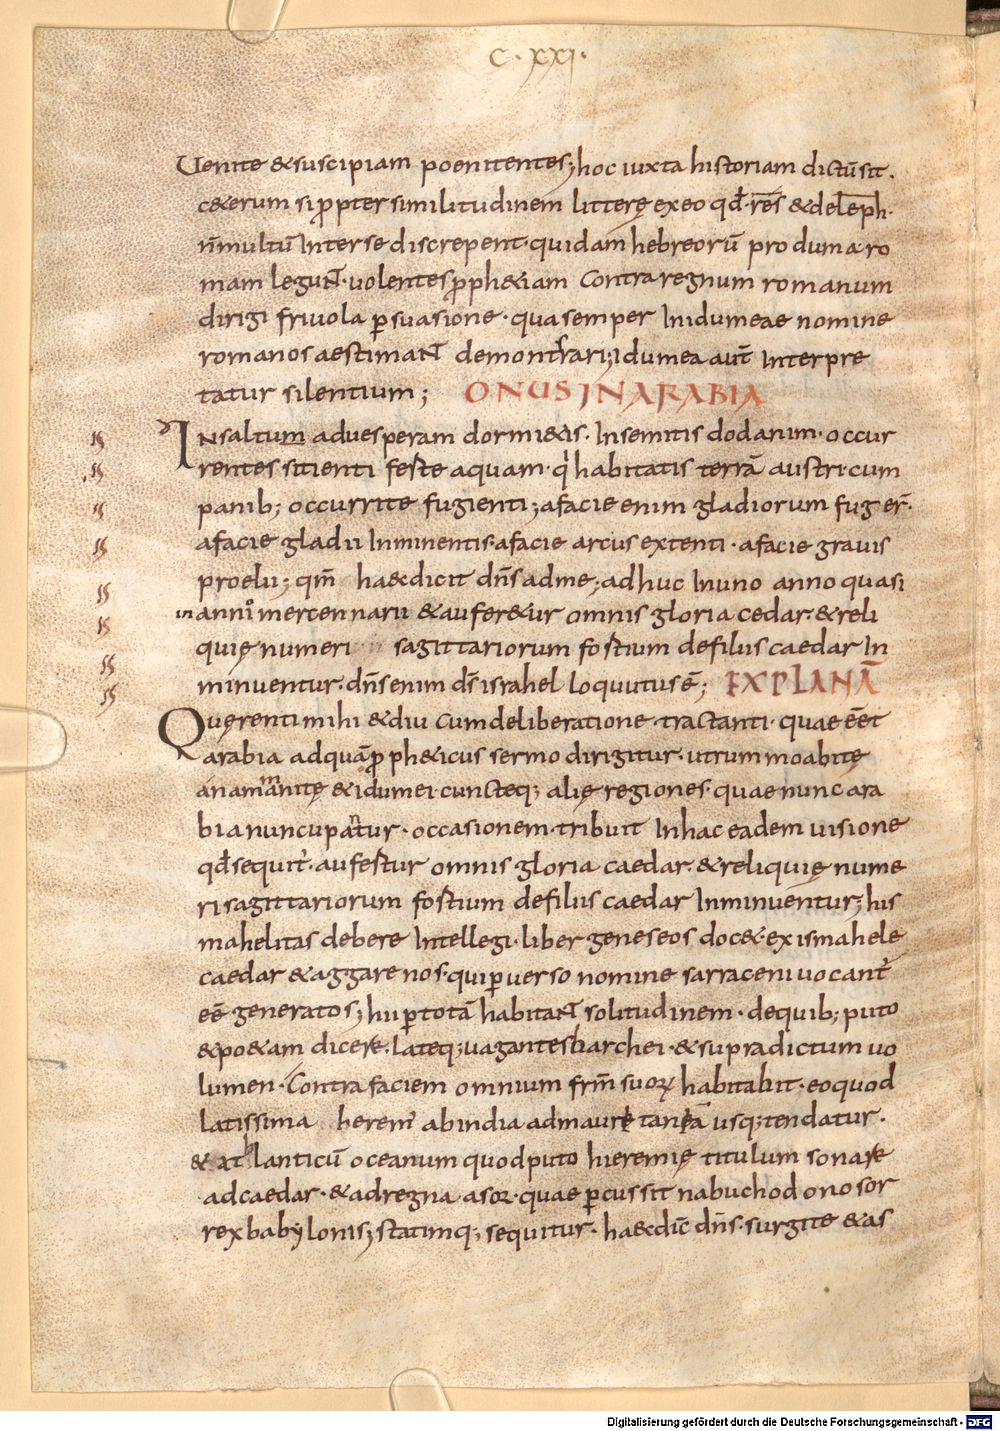 C·XXI·
Uenite &suscipiam poenitentes; hoc iuxta historiam dictū sit.
c&erum si ꝓpter similitudinem litterę exeo qd̄·res̄ & delēph·
n̄multū Interse discrepent·quidam hebreorū pro duma·ro
mam leguNT·uolentes ꝓph&iam Contra regnum romanum
dirigi friuola ꝑsuasione·qua semper Inidumeae nomine
romanos aestimaNT demontrari; Idumea aut̄ Interpre
tatur silentium; ONUS IN ARABIA
INsaltum aduesperam dormi&is. Insemitis dodanim·occur
rentes sitienti feste aquam·qi habitatis terrā austri·cum
panib; occurrite fugienti; afacie enim gladiorum fuger̄·
afacie gladii Inminentis·afacie arcus extenti·afacie grauis
proelii; qm̄ ha&dicit dn̄s adme; adhuc Inuno anno quasi
in anno mercennarii &aufer&ur omnis gloria cedar·&reli
quię numeri sagittariorum fostium defiliis caedar In
minuentur·dn̄s enim ds̄ israhel loquutus ē; EXPLANĀ
Quęrenti mihi &diu cum deliberatione·tractanti·quae ēet
arabia adquā ꝓph&icus sermo dirigitur·utrum moabitę
anammanitę &idumei·cuncteq; alię regiones·quae nunc ara
bia nuncupantur·occasionem·tribuit Inhac eadem uisione
qd̄ sequit̄·aufestur omnis gloria caedar·&reliquię nume
ri sagittariorum fostium defiliis caedar Inminuentur; his
mahelitas debere Intellegi·liber geneseos doc&·ex ismahele
caedar &aggarenos·qui ꝑuerso nomine sarraceni uocant̄
eē generatos; hii ꝑtotā habitaNT solitudinem·dequib; puto
&po&am dicere·lateq; uagantes barchei·&supradictum uo
lumen·Contra faciem omnium frm̄ suoꝝ habitabit·eoquod
latissima heremꝰ abindia admauretaniā usq; tendatur.
&atlanticū oceanum quod puto hieremię titulum sonare
adcaedar·&adregna asor·quae ꝑcussit nabuchodonosor
rex babylonis; statimq; sequitur·ha&dic̄ dn̄s·surgite &as
Digitalisierung gefördert durch die Deutsche Forschungsgemeinschaft - DFG